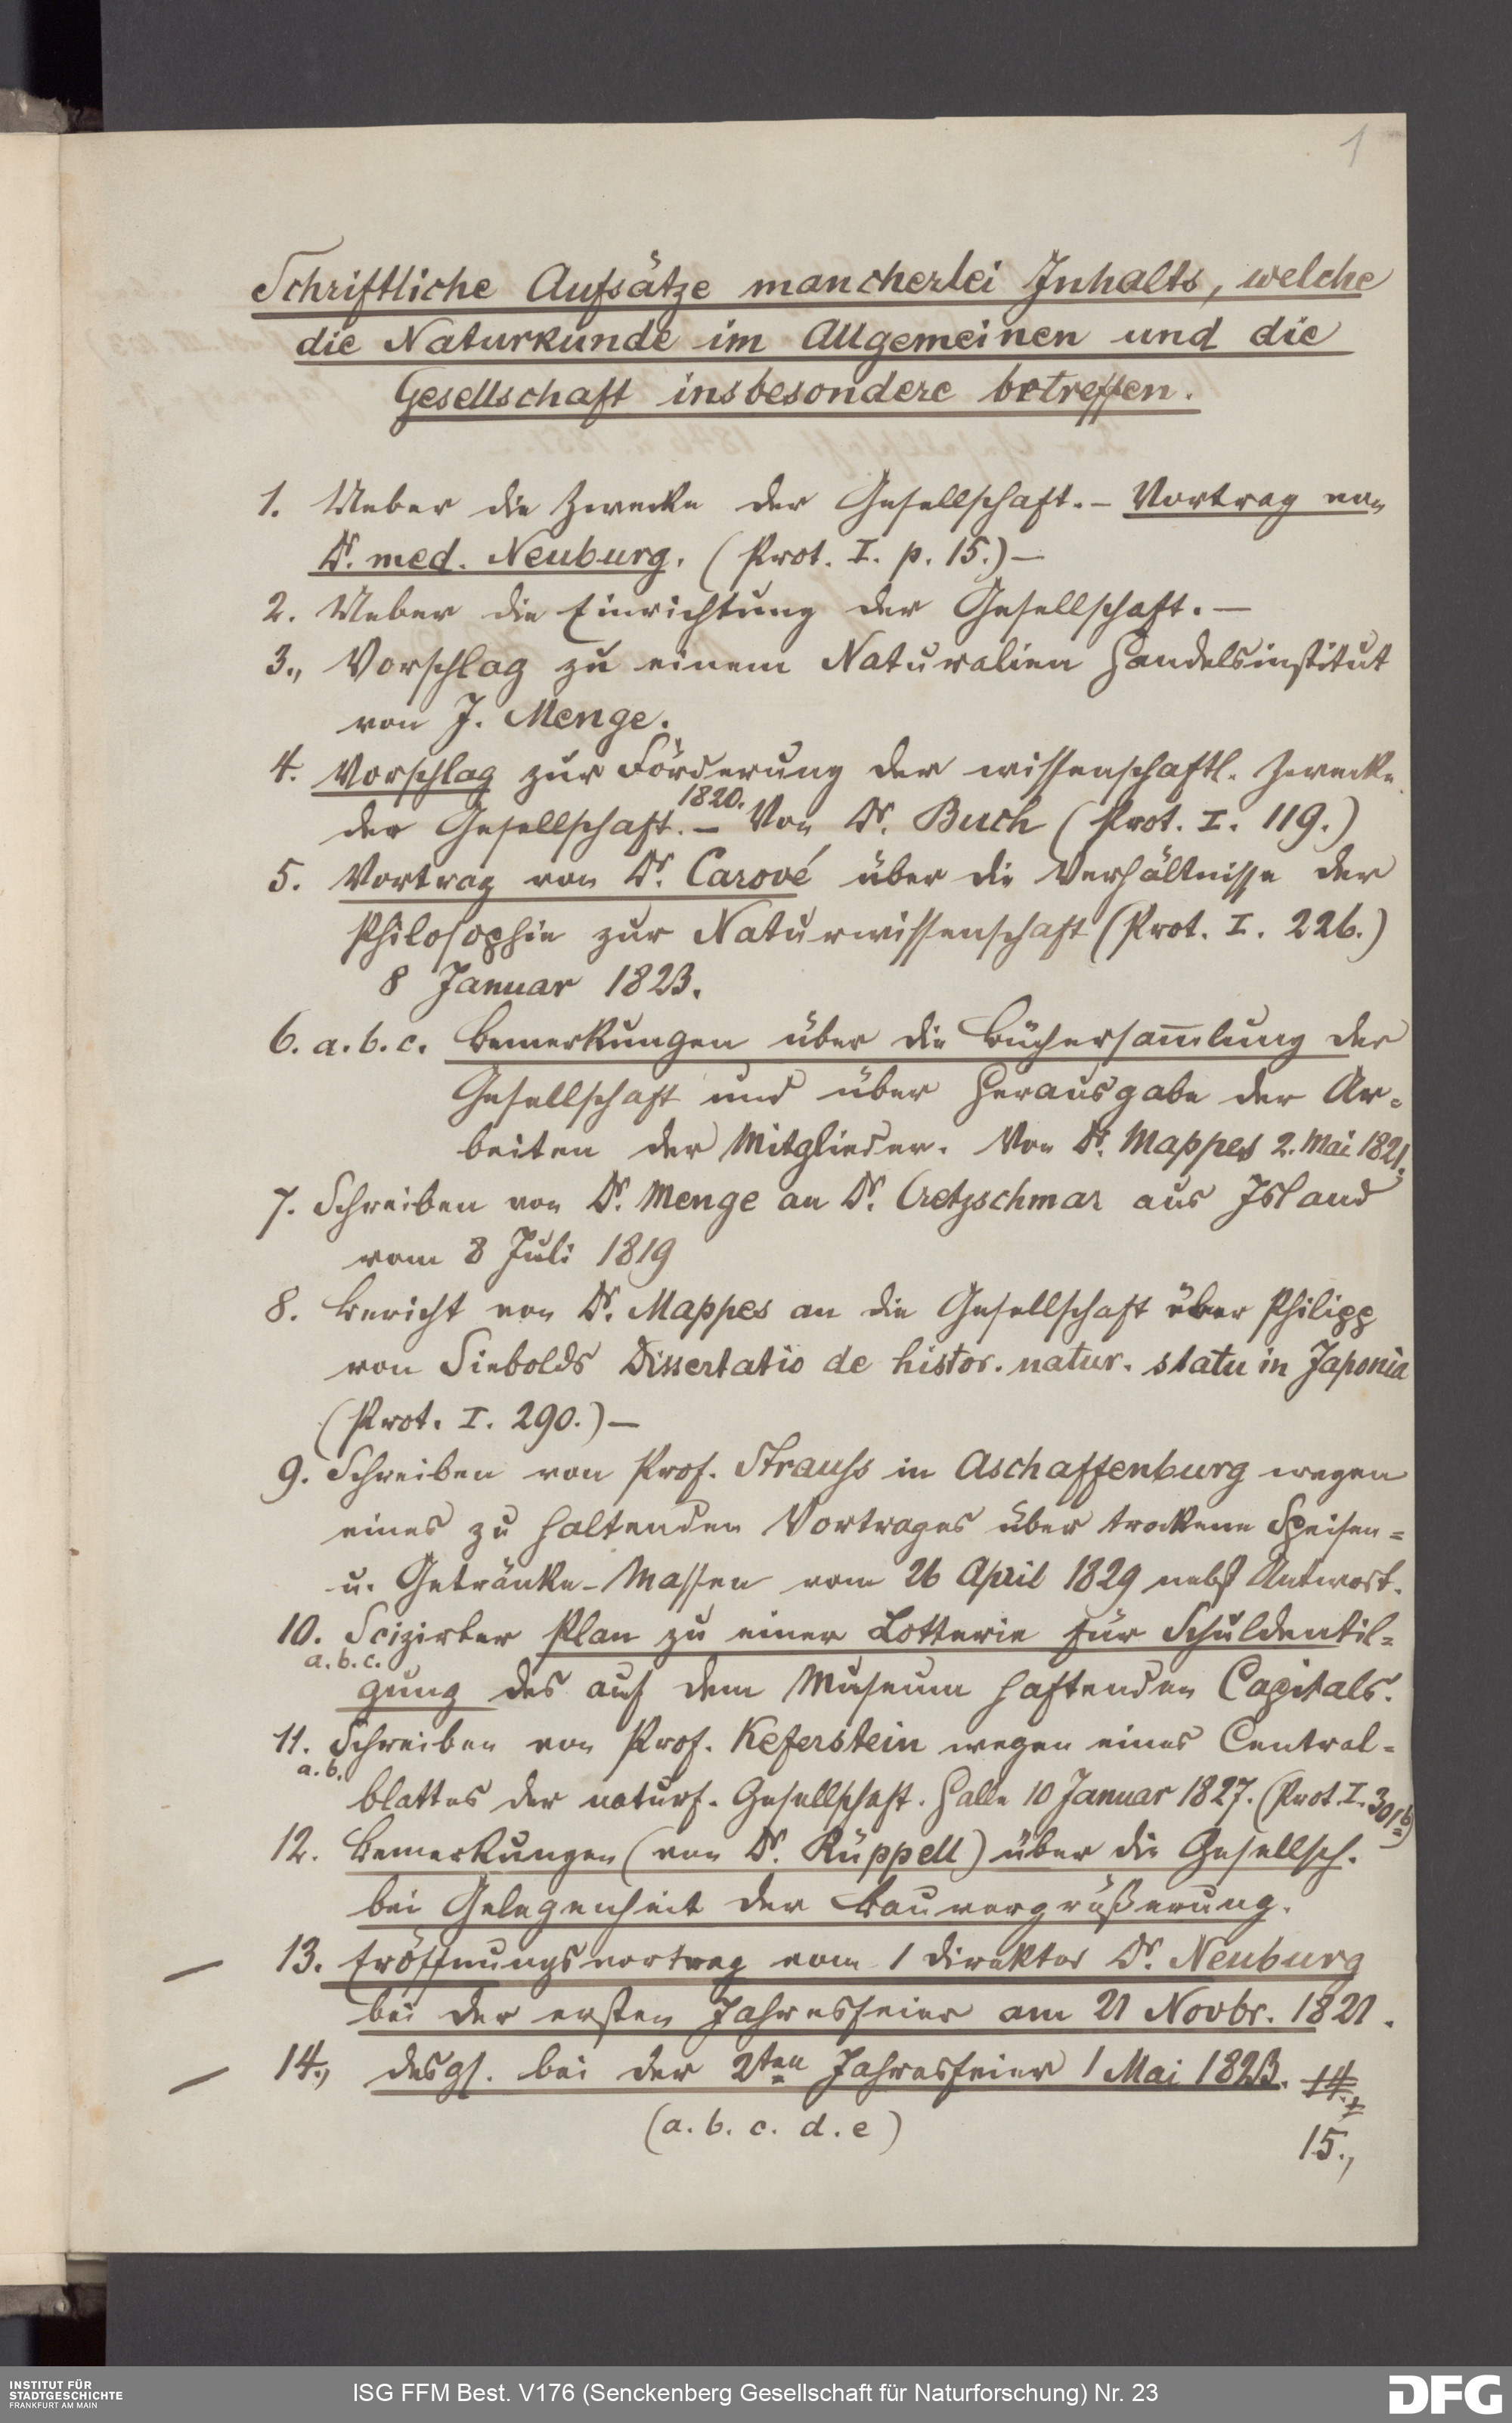 1
Schriftliche Aufsätze mancherlei Inhalts, welche
die Naturkunde im Allgemeinen und die
Gesellschaft insbesondere betreffen.
1. Ueber die Zwecke der Gesellschaft. – Vortrag von
Dr. med. Neuburg. (Prot. I. p. 15.) –
2. Ueber die Einrichtung der Gesellschaft. –
3., Vorschlag zu einem Naturalien Handelsinstitut
von J. Menge.
4. Vorschlag zur Förderung der wissenschaftl. Zwecke
der Gesellschaft. – 1820. Von Dr. Buch (Prot. I. 119.)
5. Vortrag von Dr. Carové über die Verhältnisse der
Philosophie zur Naturwissenschaft (Prot. I. 226.)
8 Januar 1823.
6. a. b. c. Bemerkungen über die Büchersam̅lung der
Gesellschaft und über Herausgabe der Ar=
beiten der Mitglieder. Von Dr. Mappes 2. Mai 1821.
7. Schreiben von Dr. Menge an Dr. Cretzschmar aus Island
vom 8 Juli 1819
8. Bericht von Dr. Mappes an die Gesellschaft über Philipp
von Siebolds Dissertatio de histor. natur. statu in Japonia
(Prot. I. 290.) –
9. Schreiben von Prof. Strauss in Aschaffenburg wegen
eines zu haltenden Vortrages über trockene Speisen=
u. Getränke-Massen vom 26 April 1829 nebst Antwort.
10. Scizirter Plan zu einer Lotterie für Schuldentil=
a. b. c.
gung des auf dem Museum haftenden Capitals.
11. Schreiben von Prof. Keferstein wegen eines Central=
a. b.
blattes der naturf. Gesellschaft. Halle 10 Januar 1827. (Prot. I. 301b)
12. Bemerkungen (von Dr. Rüppell) über die Gesellsch.
bei Gelegenheit der Bauvergrößerung.
— 13. Eröffnungsvortrag vom 1 Direktor Dr. Neuburg
bei der ersten Jahresfeier am 21 Novbr. 1821.
— 14., desgl. bei der 2ten Jahresfeier 1 Mai 1823. 14.,
(a. b. c. d. e)
15.,
INSTITUT FÜR
STADTGESCHICHTE
FRANKFURT AM MAIN
ISG FFM Best. V176 (Senckenberg Gesellschaft für Naturforschung) Nr. 23
DFG